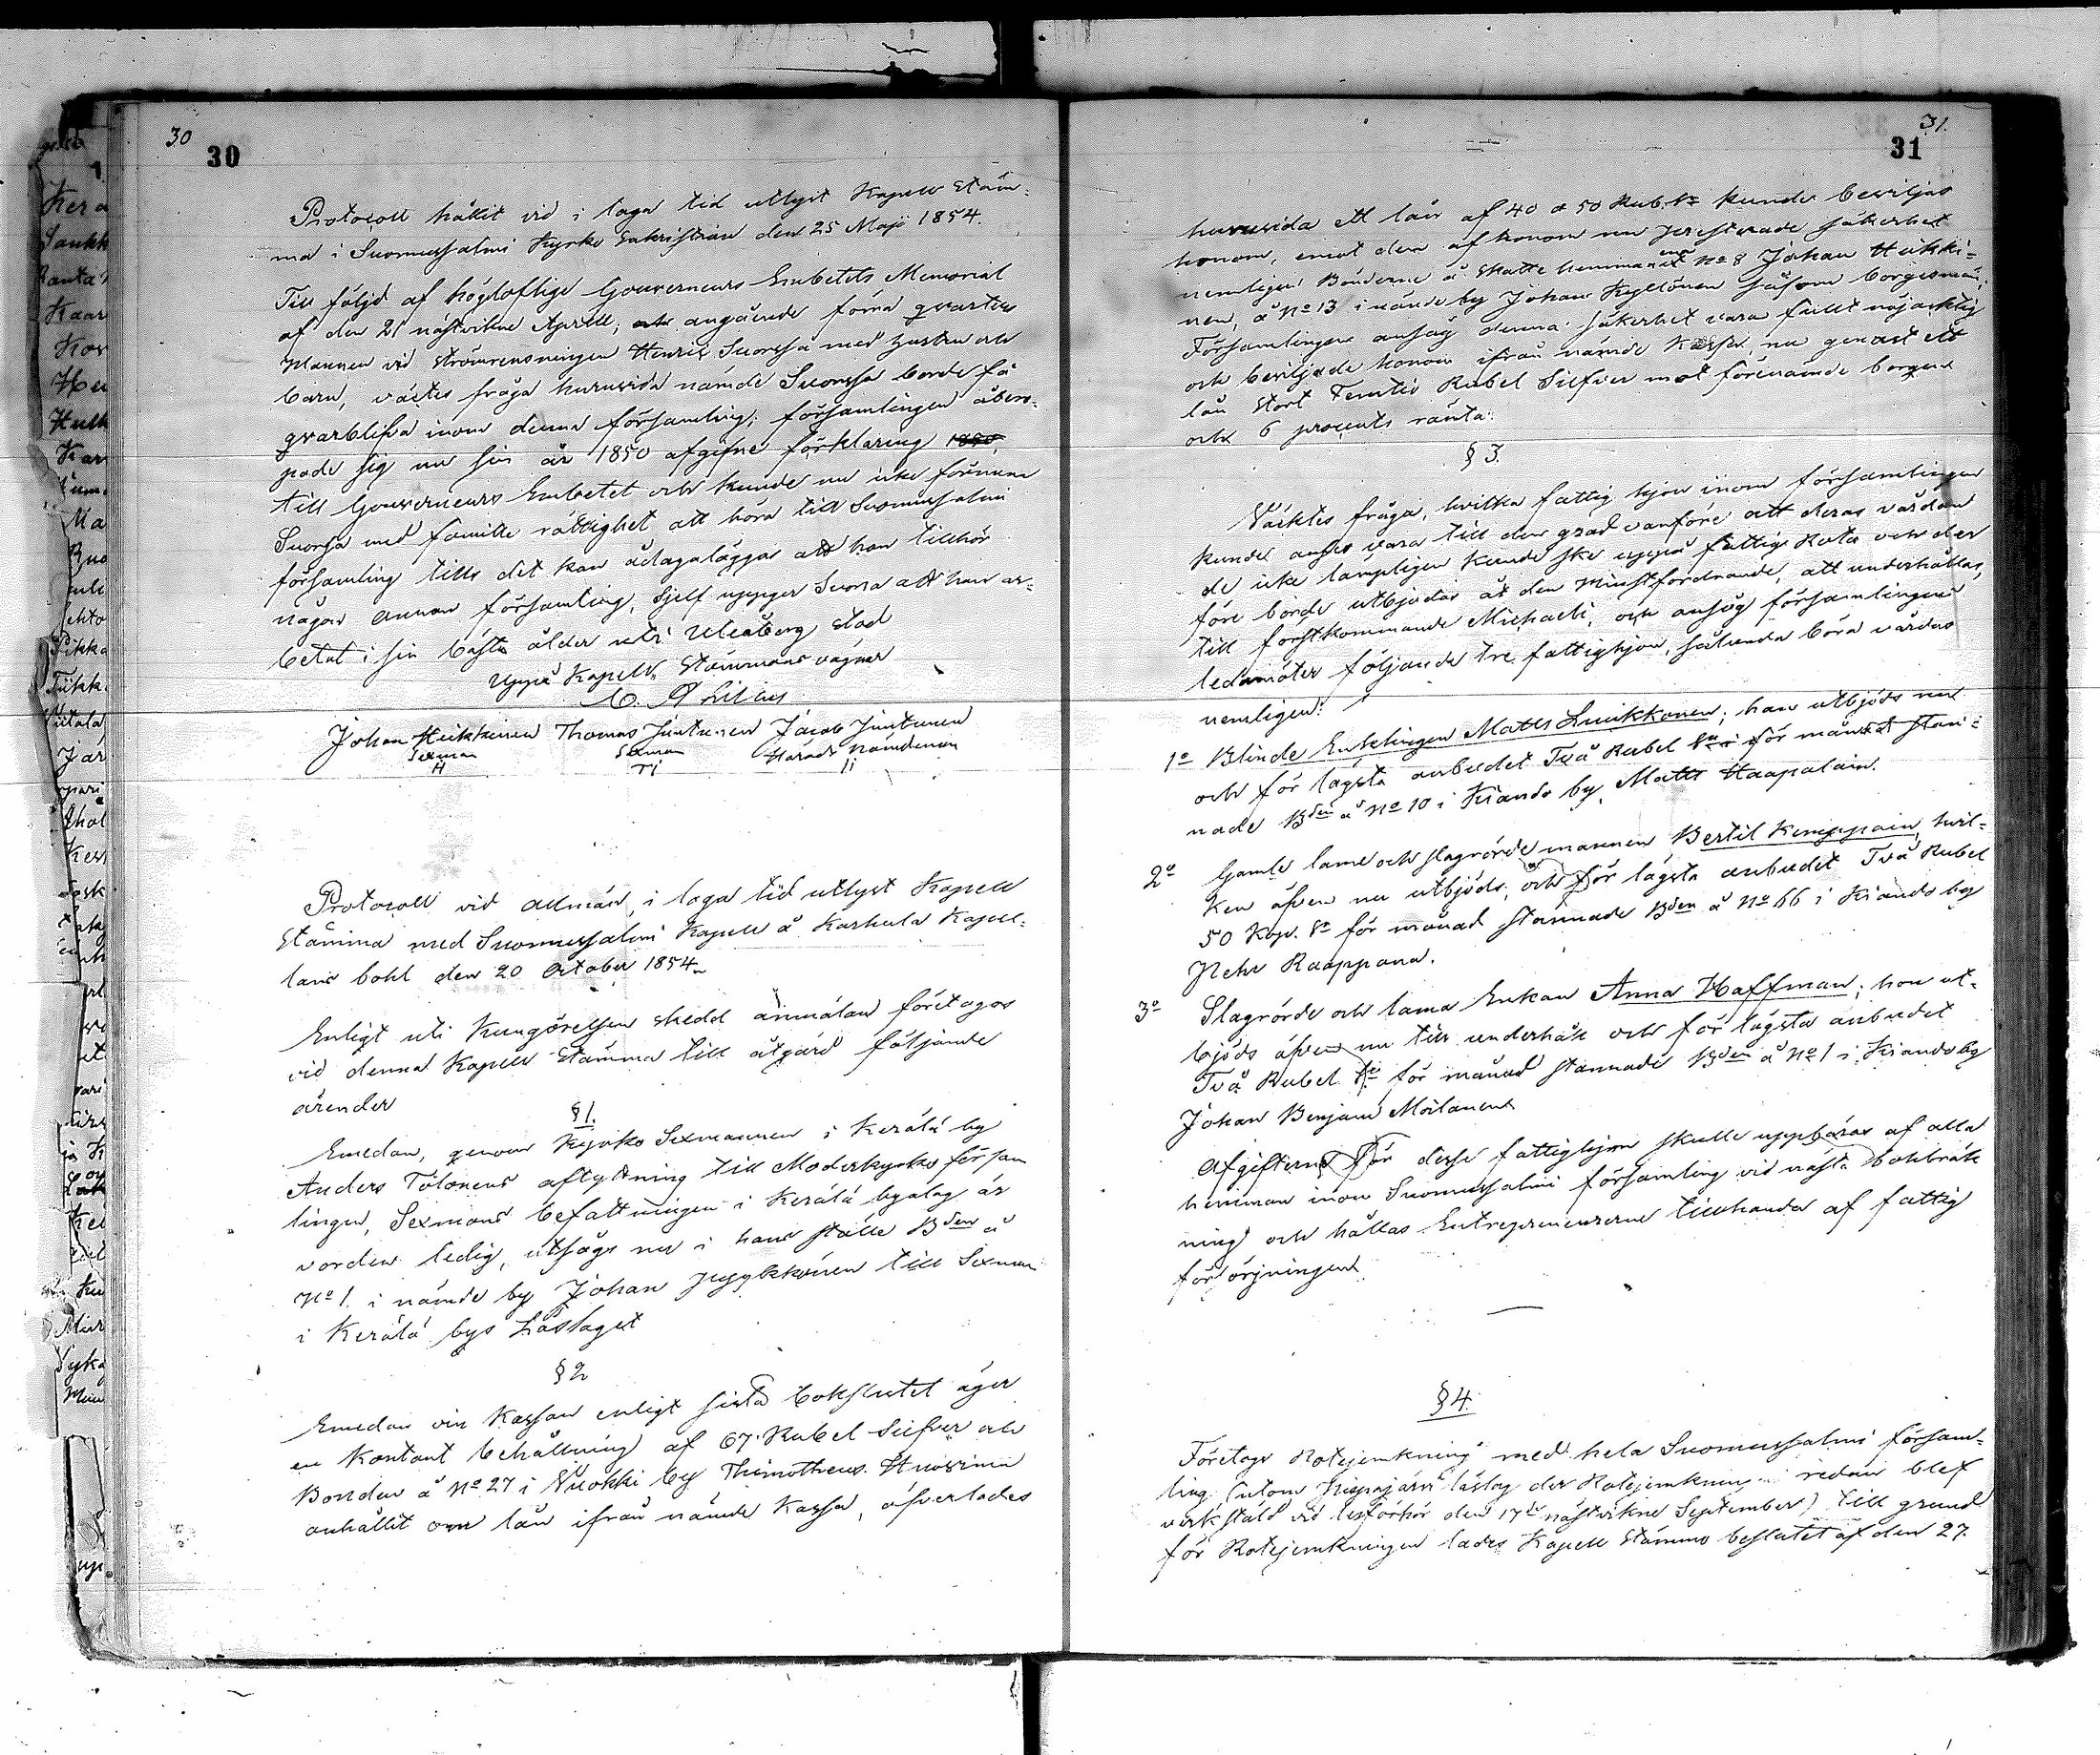 30
30
Protocoll hållit vid i laga tid utlyst Kapell Stäm-
ma i Suomussalmi Kyrko Sakristian den 25 Maji 1854.
Till följd af högloflige Gouverneurs Embetets Memorial
af den 21 nästvikne Aprill, angående förra qvarters
Mannen vid Strömrensningen Henric Suorsa med hustru och
barn, väcktes fråga huruvida nämde Suorsa borde få
qvarblifva inom denna församling; församlingen åbero-
pade sig nu sin år 1850 afgifne förklaring 1850
till Gouverneurs Embetet och kunde nu icke förunna
Suorsa med famille rättighet att höra till Suomussalmi
församling tills det kan ådagaläggas att han tillhör
någon annan församling, sjelf uppger Suorsa att han ar-
betat i sin bästa ålder uti Uleåborg stad
Uppå Kapell Stämmans vägnar
C. A Lilius
Johan Heikkinen Thomas Juntunen Jacob Juntunen
Sexman Sexman Härads Nämdeman
H TJ JJ
Protocoll vid allmän, i laga tid utlyst Kapell
Stämma med Suomussalmi Kapell å Karhula Kapel-
lans bohl den 20 October 1854
Enligt uti Kungörelsen skedd anmälan företogos
vid denna Kapell Stämma till åtgärd följande
ärender
§ 1.
Emedan, genom Kyrko Sexmannen i Kerälä by
Anders Tolonens aflyttning till Moderkyrko försam
lingen, Sexmans befattningen i Kerälä byalag är
vorden ledig, utsågs nu i hans ställe Bden å
No 1. i nämde by Johan Pyykkönen till Sexman
i Kerälä bys Läslaget
§ 2
Emedan vin Kassan enligt sista bokslutet äger
en Kontant behållning af 67 Rubel Silfver och
Bonden å No 27 i Vuokki by Thimotheus Huovinen
anhållit om lån ifrån nämde Kassa, öfverlades
31.
31
huruvida ett lån af 40 a 50 Rub. Sr kunde beviljas
honom, emot den af honom nu presterade säkerhet
nemligen Bönderne å Skatte hemmanen No 8 Johan Heikki-
nen, å No 13 i nämde by Johan Kyllönen såsom borgesmän;
Församlingen ansåg denna säkerhet vara fullt nöjaktig
och beviljade honom ifrån nämde Kassa, nu genast ett
lån stort Femtio Rubel Silfver mot förenämde borgen
och 6 procents ränta.
§ 3.
Väcktes fråga, hvilka fattig hjon inom församlingen
kunde anses vara till den grad vanföre att deras vårdan
de icke lämpligen kunde ske uppå fattige Rotar och der
före borde utbjudas åt den Minstfordrande, att underhållas,
till förstkommande Michaeli, och ansåg församlingens
ledamöter följande tre fattighjon, sålunda böra vårdas
nemligen:
1o Blinde Enklingen Matts Luukkonen; han utbjöds nu
och för lägsta anbudet Två Rubel Sr i för månad stan-
nade Bden å No 10 i Kiando by, Matts Haapalain.
2o Gamle lame och slagrörde mannen Bertil Kemppain, hvil-
ken äfven nu utbjöds, och för lägsta anbudet Två Rubel
50 Kop. Sr för månad stannade Bden å No 66 i Kiando by
Pehr Kaappana.
3o Slagrörde och lama Enkan Anna Haffman; hon ut-
bjöds äfven nu till underhåll och för lägsta anbudet
Två Rubel Sr för månad stannade Bden å No 1 i Kiando by
Johan Benjam Moilanen
Afgifterne för desse fattighjon skulle uppbäras af alla
hemman inom Suomussalmi församling vid nästa bohlräk
ning och hållas Entrepreneurerne tillhanda af fattig
försörjningen
§ 4.
Företogs Rotejemkning med hela Suomussalmi försam-
ling (utom läslag der Rotejemkningen redan blef
verkställd vid läsförhör den 17de nästvikne September) till grund
för Rotejemkningen lades Kapell Stämmo beslutet af den 27.